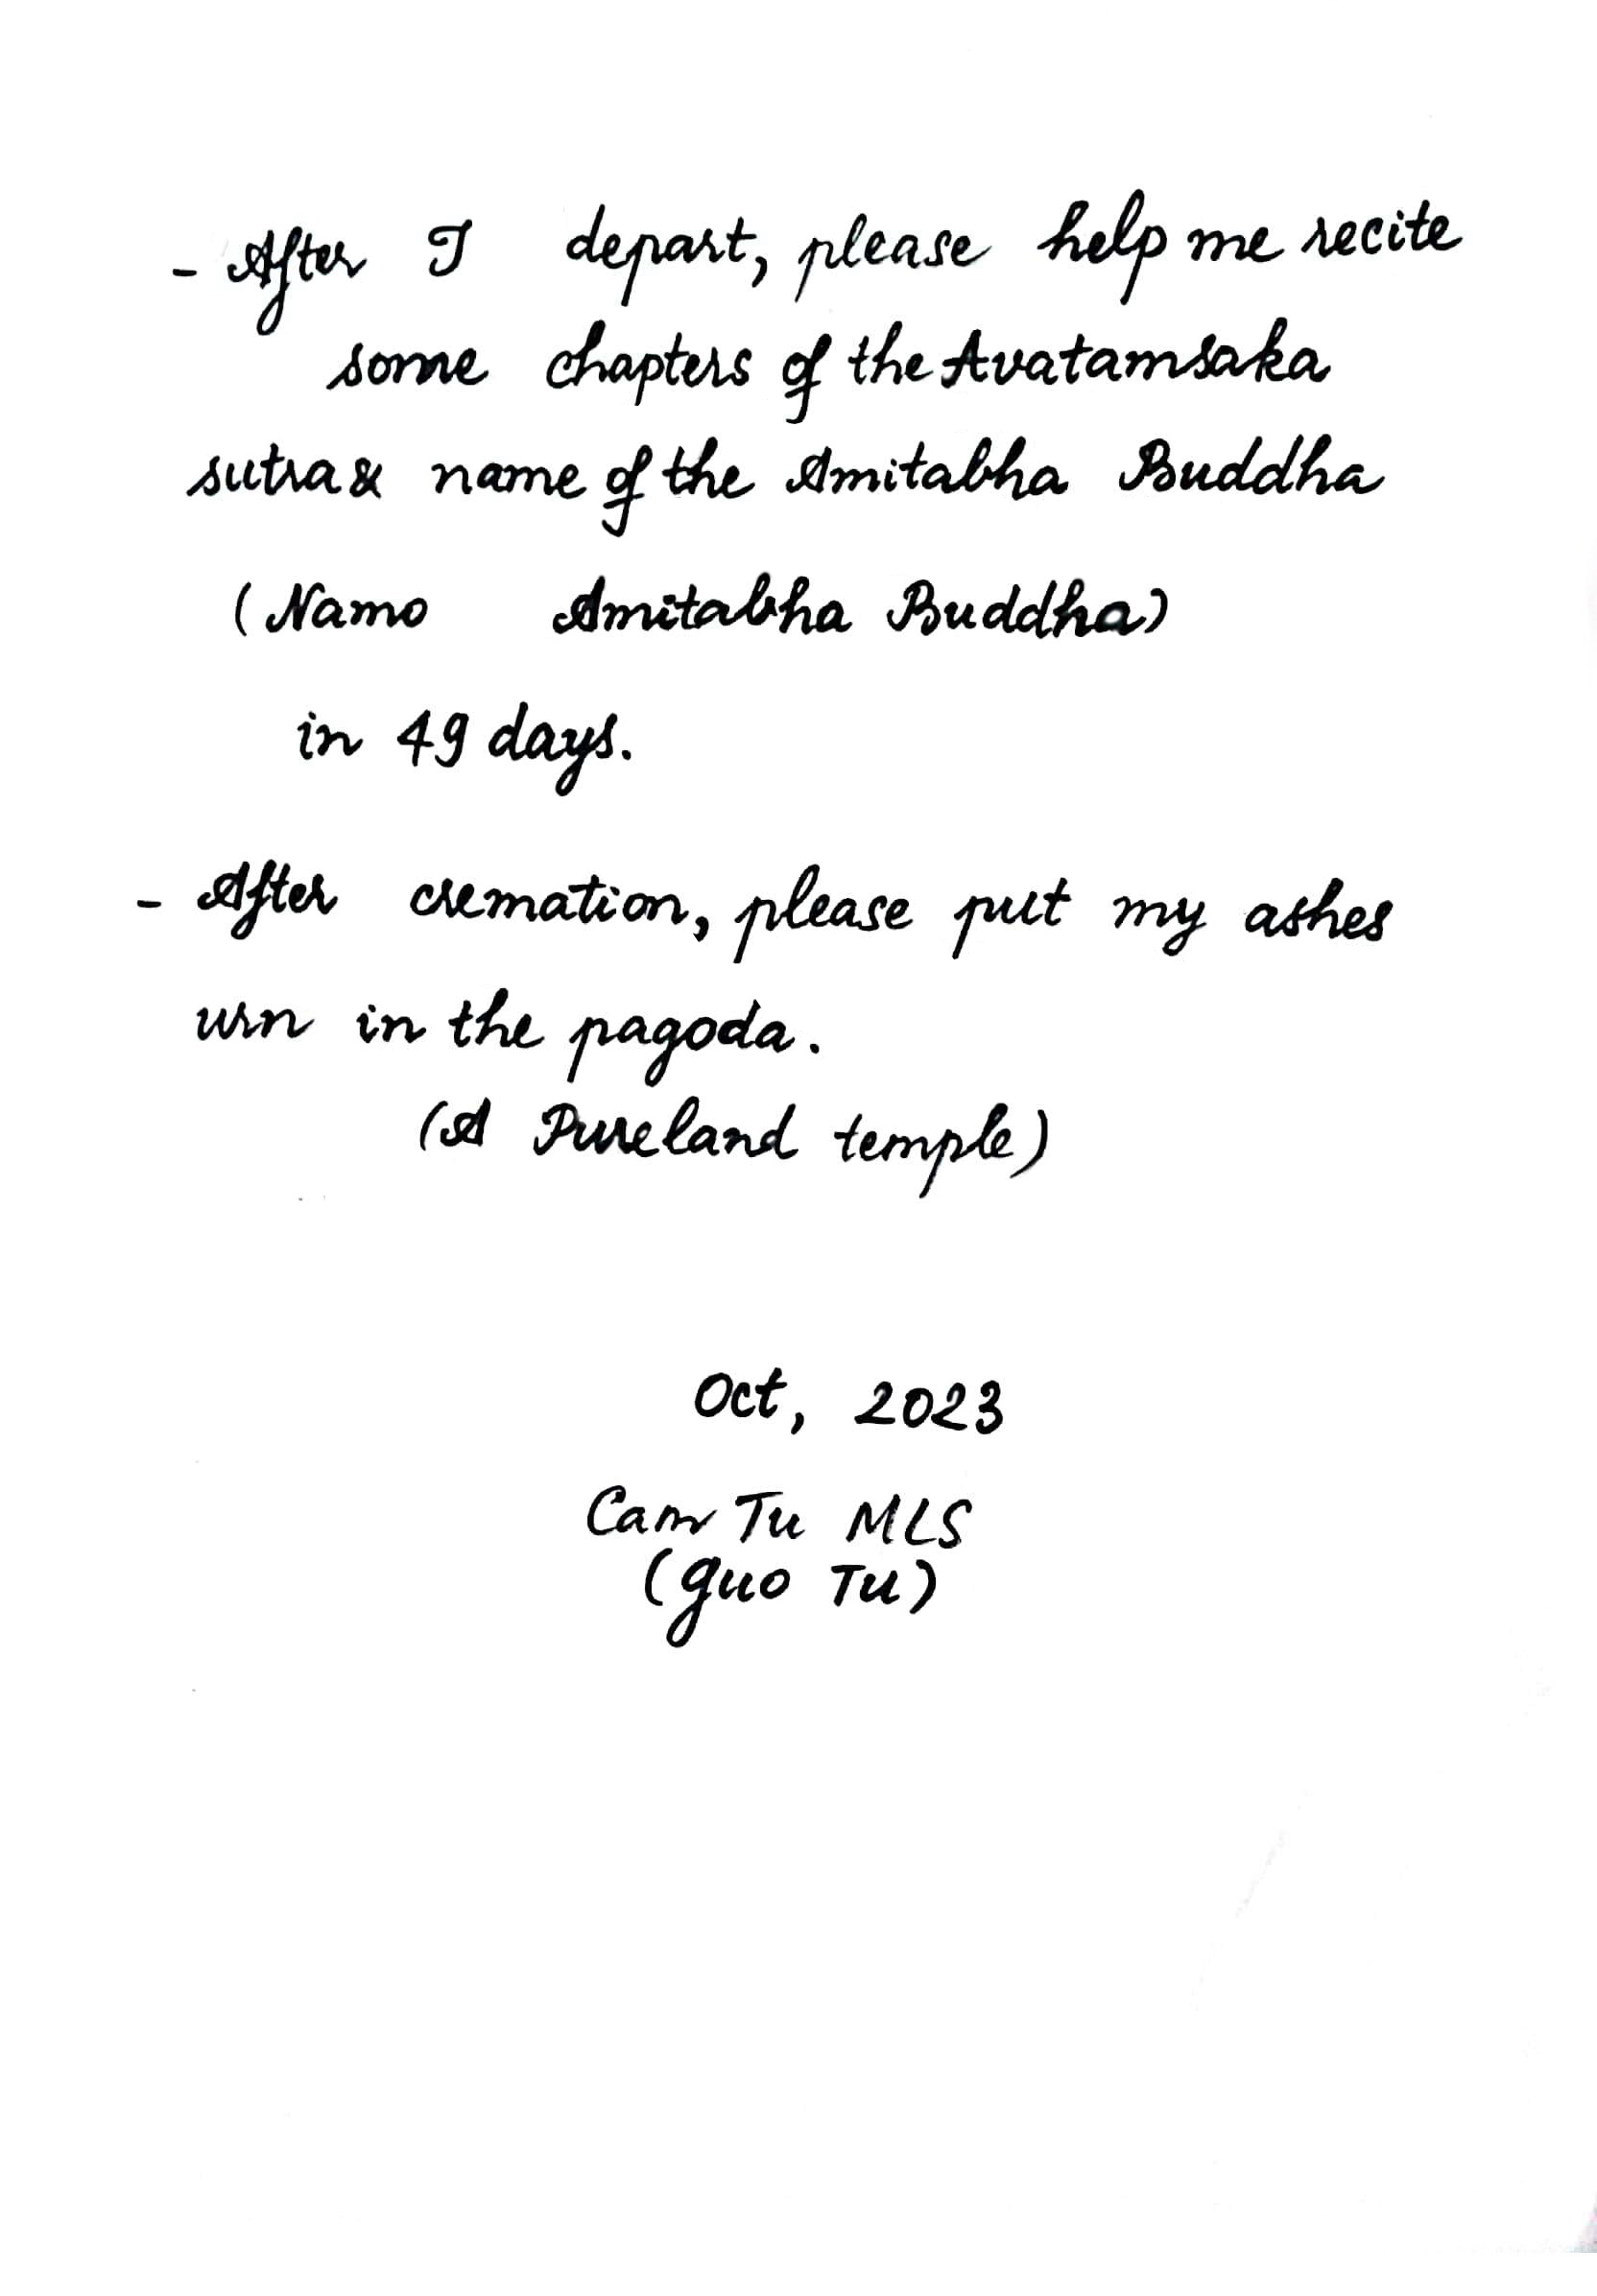 - After I depart, please help me recite
some chapters of the Avatamsaka
sutra & name of the Amitabha Buddha
(Namo Amitabha Buddha)
in 49 days.
- After cremation, please put my ashes
urn in the pagoda.
(A Pureland temple)
Oct, 2023
Cam Tu MLS
(guo Tu)